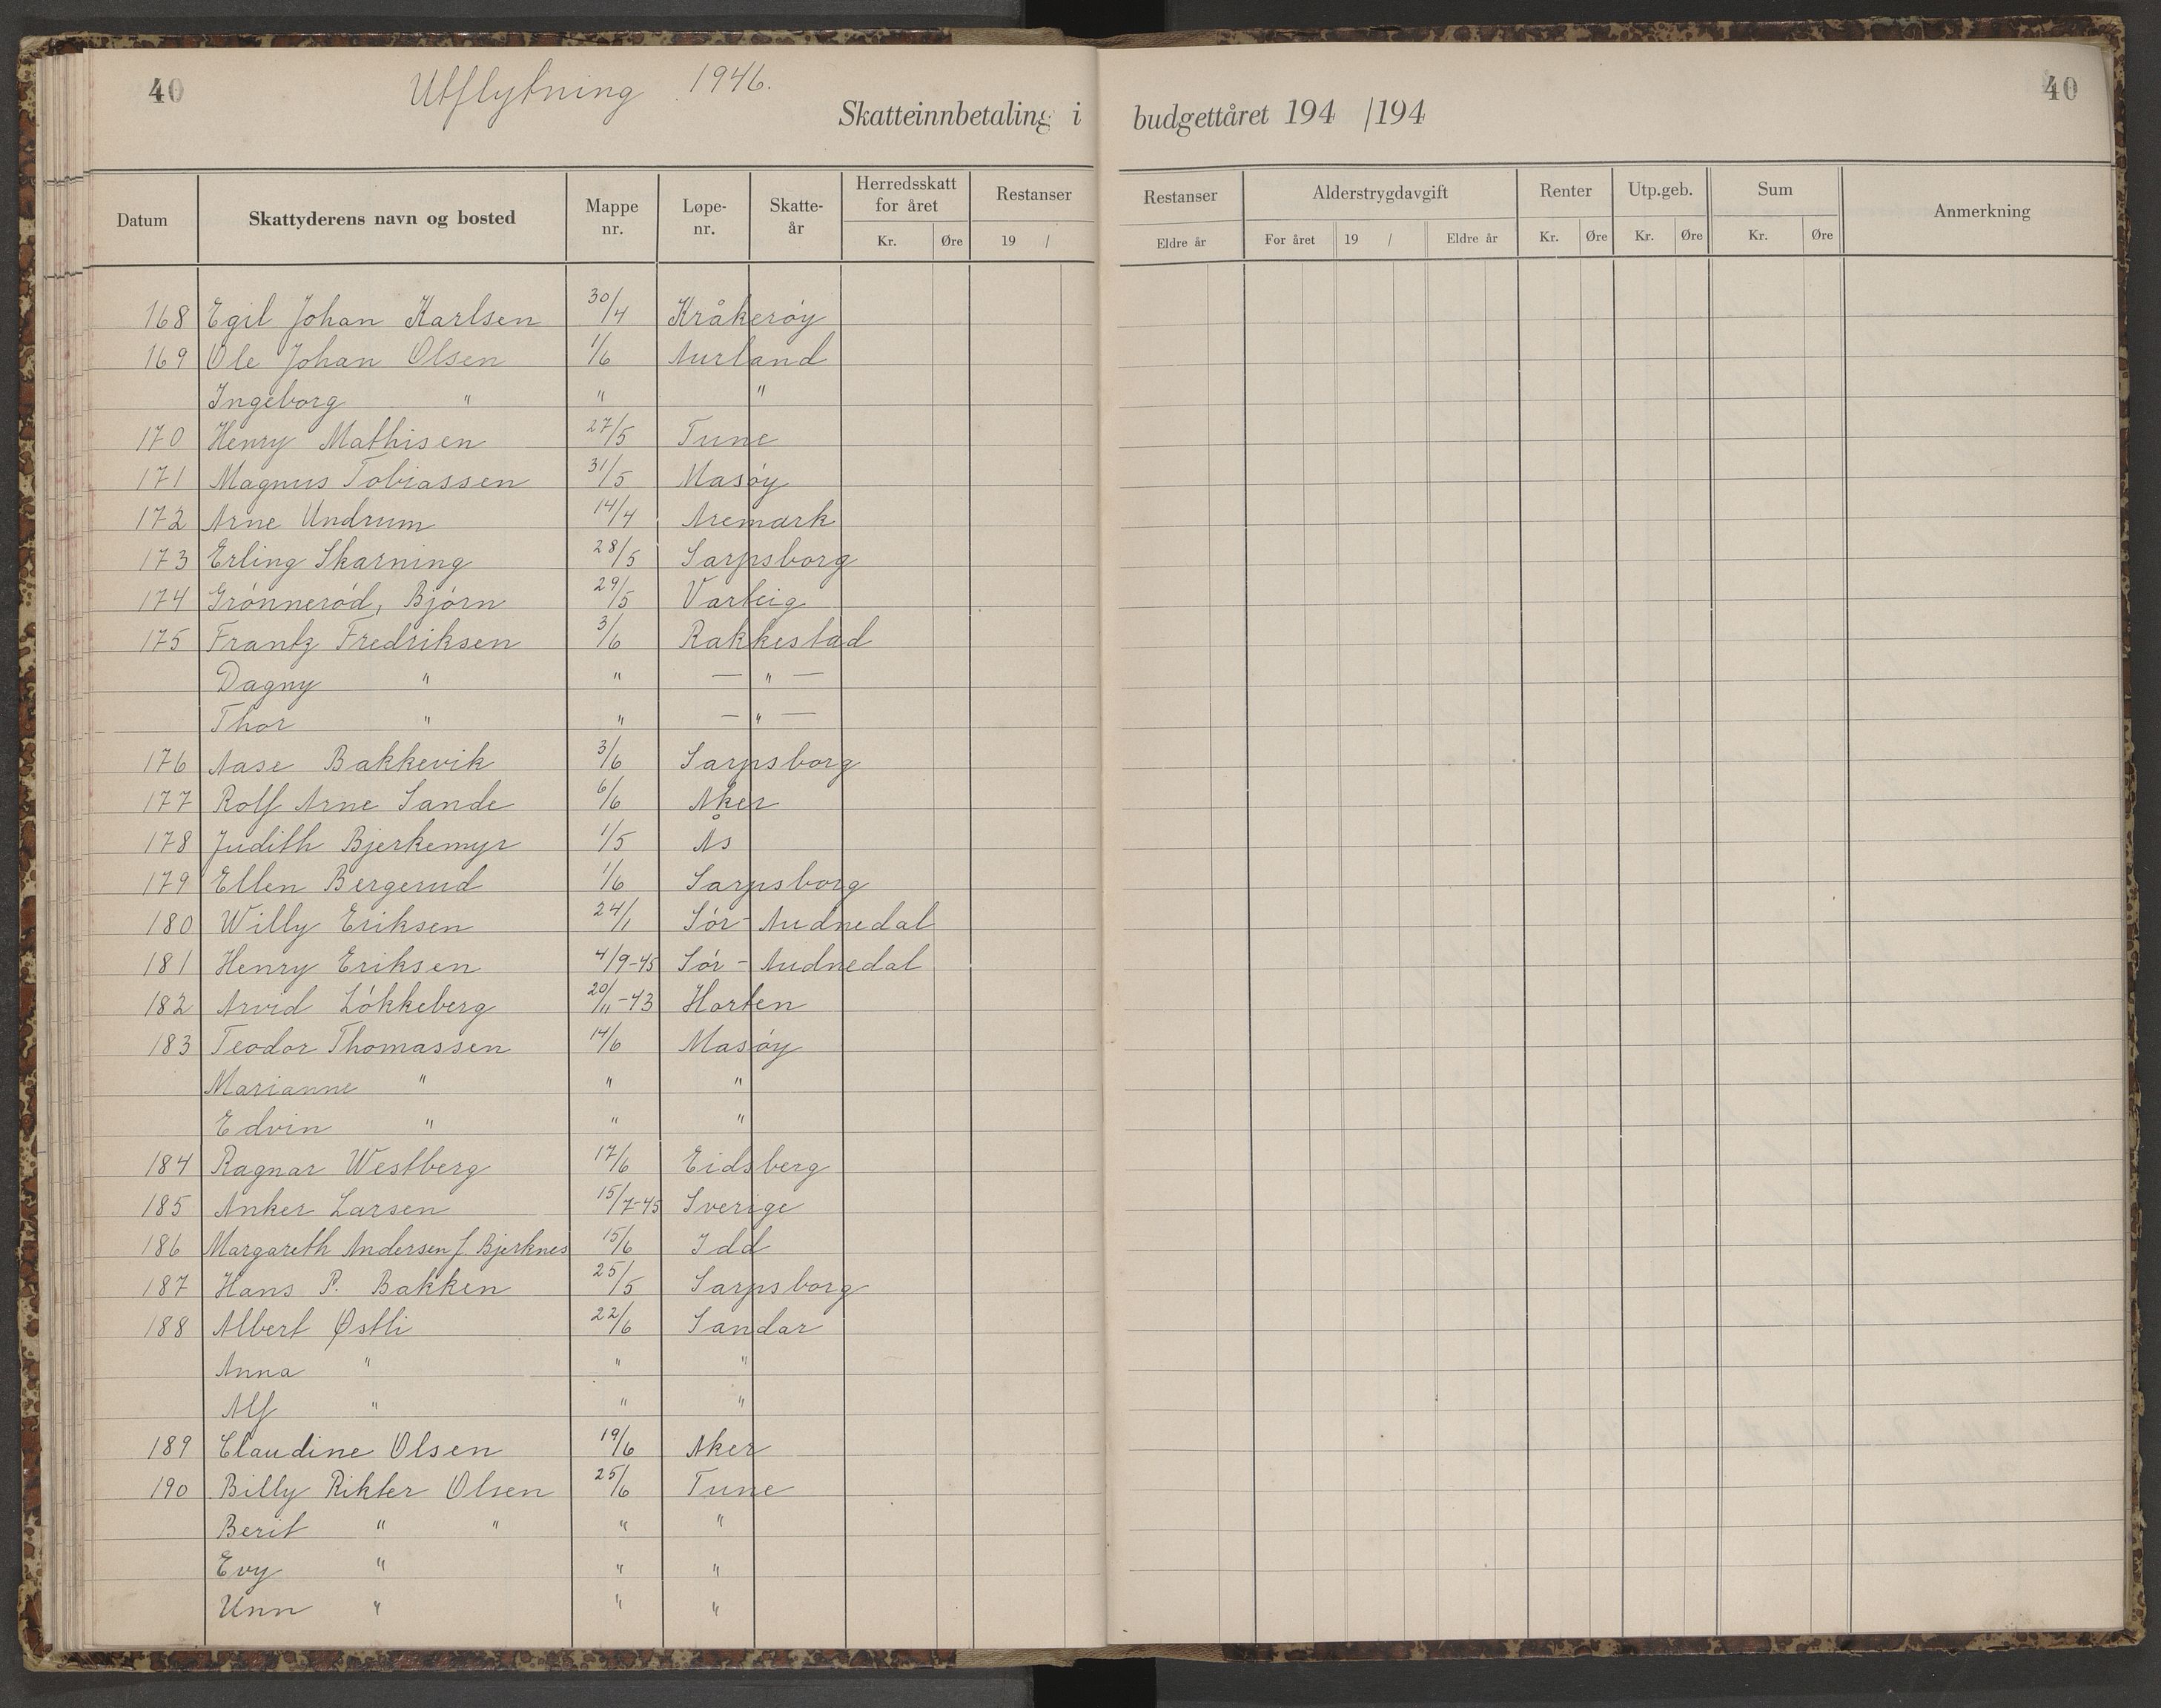 40
Utflytning 1946.
40
Skatteinnbetaling i budgettåret 194 /194
Datum | Skattyderens navn og bosted | Mappe nr. | Løpe- nr. | Skatte- år | Herredsskatt for året | Restanser | Restanser | Alderstrygdavgift | Renter | Utp.geb. | Sum | Anmerkning
Kr. | Øre | 19 / | Eldre år | For året | 19 / | Eldre år | Kr. | Øre | Kr. | Øre | Kr. | Øre
168 Egil Johan Karlsen 30/4 Kråkerøy
169 Ole Johan Olsen 1/6 Aurland
Ingeborg " " "
170 Henry Mathisen 27/5 Tune
171 Magnus Tobiassen 31/5 Masøy
172 Arne Undrum 14/4 Aremark
173 Erling Skarning 28/5 Sarpsborg
174 Grønnerød, Bjørn 29/5 Varteig
175 Frantz Fredriksen 3/6 Rakkestad
Dagny " " — " —
Thor " " — " —
176 Aase Bakkevik 3/6 Sarpsborg
177 Rolf Arne Sande 6/6 Aker
178 Judith Bjerkemyr 1/5 Ås
179 Ellen Bergerud 1/6 Sarpsborg
180 Willy Eriksen 24/1 Sør-Audnedal
181 Henry Eriksen 4/9-45 Sør-Audnedal
182 Arvid Løkkeberg 20/11-43 Horten
183 Teodor Thomassen 14/6 Masøy
Marianne " " "
Edvin " " "
184 Ragnar Westberg 17/6 Eidsberg
185 Anker Larsen 15/7-45 Sverige
186 Margareth Andersen f. Bjerknes 15/6 Idd
187 Hans P. Bakken 25/5 Sarpsborg
188 Albert Østli 22/6 Sandar
Anna " " "
Alf " " "
189 Claudine Olsen 19/6 Aker
190 Billy Rikter Olsen 25/6 Tune
Berit " " " "
Evy " " "
Unn " " "